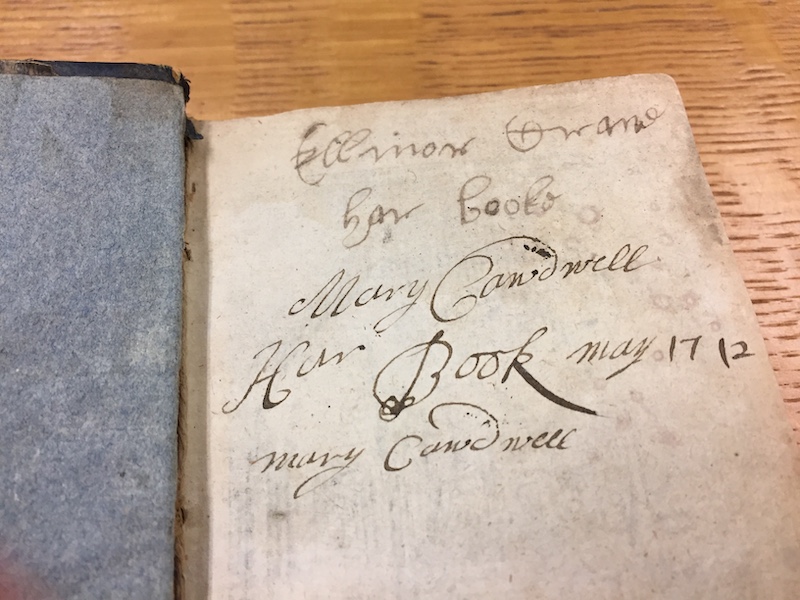 Ellinor
har booke
Mary Cawdwell
Har Book may 1712
mary Cawdwell